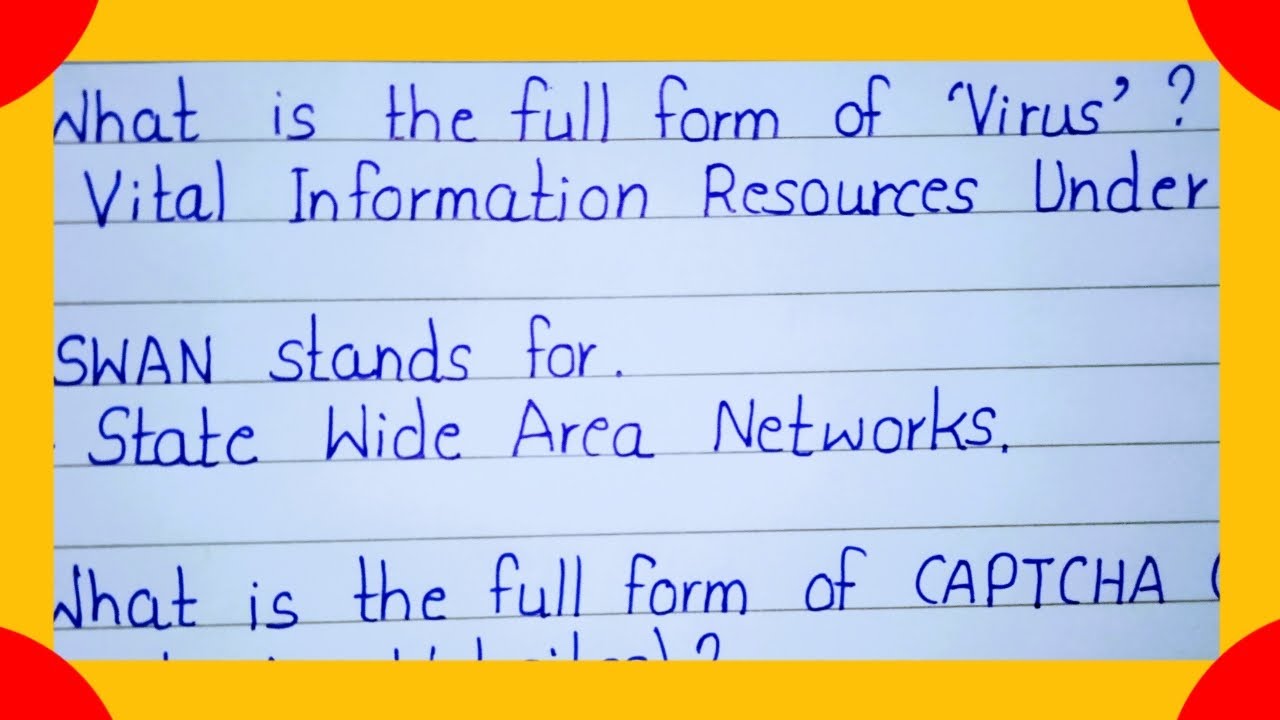 What is the full form of 'Virus'?
Vital Information Resources Under
SWAN stands for.
State Wide Area Networks.
What is the full form of CAPTCHA (